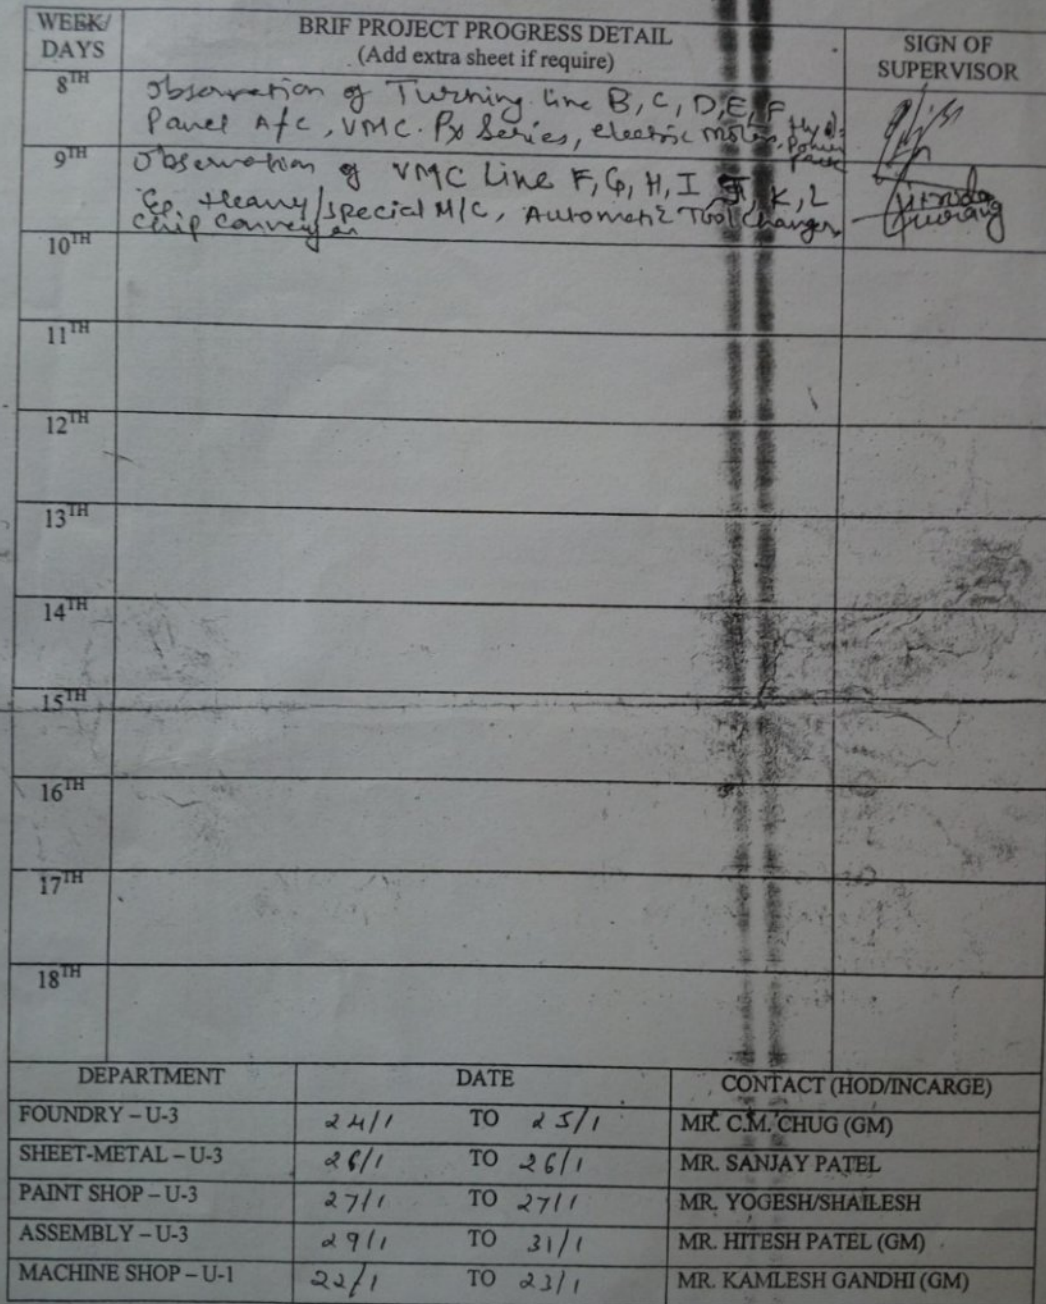 WEEK/ DAYS
BRIF PROJECT PROGRESS DETAIL
(Add extra sheet if require)
SIGN OF SUPERVISOR
8TH
Observation of Turning line B, C, D, E, F
Panel A/c, VMC. Px Series, electric motor, Hyd. Power Pack
9TH
Observation of VMC Line F, G, H, I, J, K, L
Heavy/special M/C, Automatic Tool Changer,
Chip Conveyor
10TH
11TH
12TH
13TH
14TH
15TH
16TH
17TH
18TH
DEPARTMENT DATE CONTACT (HOD/INCARGE)
FOUNDRY – U-3 24/1 TO 25/1 MR. C.M. CHUG (GM)
SHEET-METAL – U-3 26/1 TO 26/1 MR. SANJAY PATEL
PAINT SHOP – U-3 27/1 TO 27/1 MR. YOGESH/SHAILESH
ASSEMBLY – U-3 29/1 TO 31/1 MR. HITESH PATEL (GM)
MACHINE SHOP – U-1 22/1 TO 23/1 MR. KAMLESH GANDHI (GM)